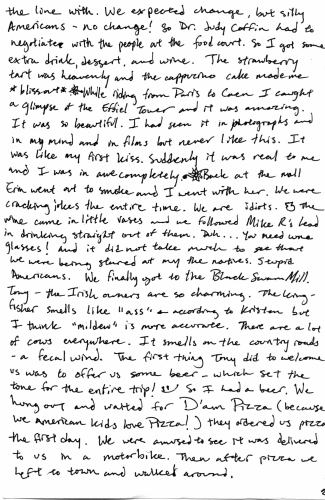 the line with. We expected change, but silly
Americans - no change! So Dr. Judy Coffin had to
negotiate with the people at the food court. So I got some
extra drink, dessert, and wine. The strawberry
tart was heavenly and the cappuzino cake made me
*bliss out* While riding from Paris to Caen I caught
a glimpse of the Effiel Tower and it was amazing.
It was so beautiful. I had seen it in photographs and
in my mind and in films but never like this. It
was like my first kiss. Suddenly it was real to me
and I was in awe completely. Back at the mall
Erin went out to smoke and I went with her. We were
cracking jokes the entire time. We are idiots. The
wine came in little vases and we followed Mike R's lead
in drinking straight out of them. Duh... You need wine
glasses! And it did not take much to see that
we were being stared at my the natives. Stupid
Americans. We finally got to the Black Swan Mill.
Tony - the Irish owners are so charming. The King-
fisher smells like "ass" - according to Kristen but
I think "mildew" is more accurate. There are a lot
of cows everywhere. It smells on the country roads
- a fecal wind. The first thing Tony did to welcome
us was to offer us some beer - which set the
tone for the entire trip! So I had a beer. We
hung out and waited for D'am Pizza (because
we American kids love Pizza!) they ordered us pizza
the first day. We were amused to see it was delivered
to us in a motorbike. Then after pizza we
left to town and walked around.